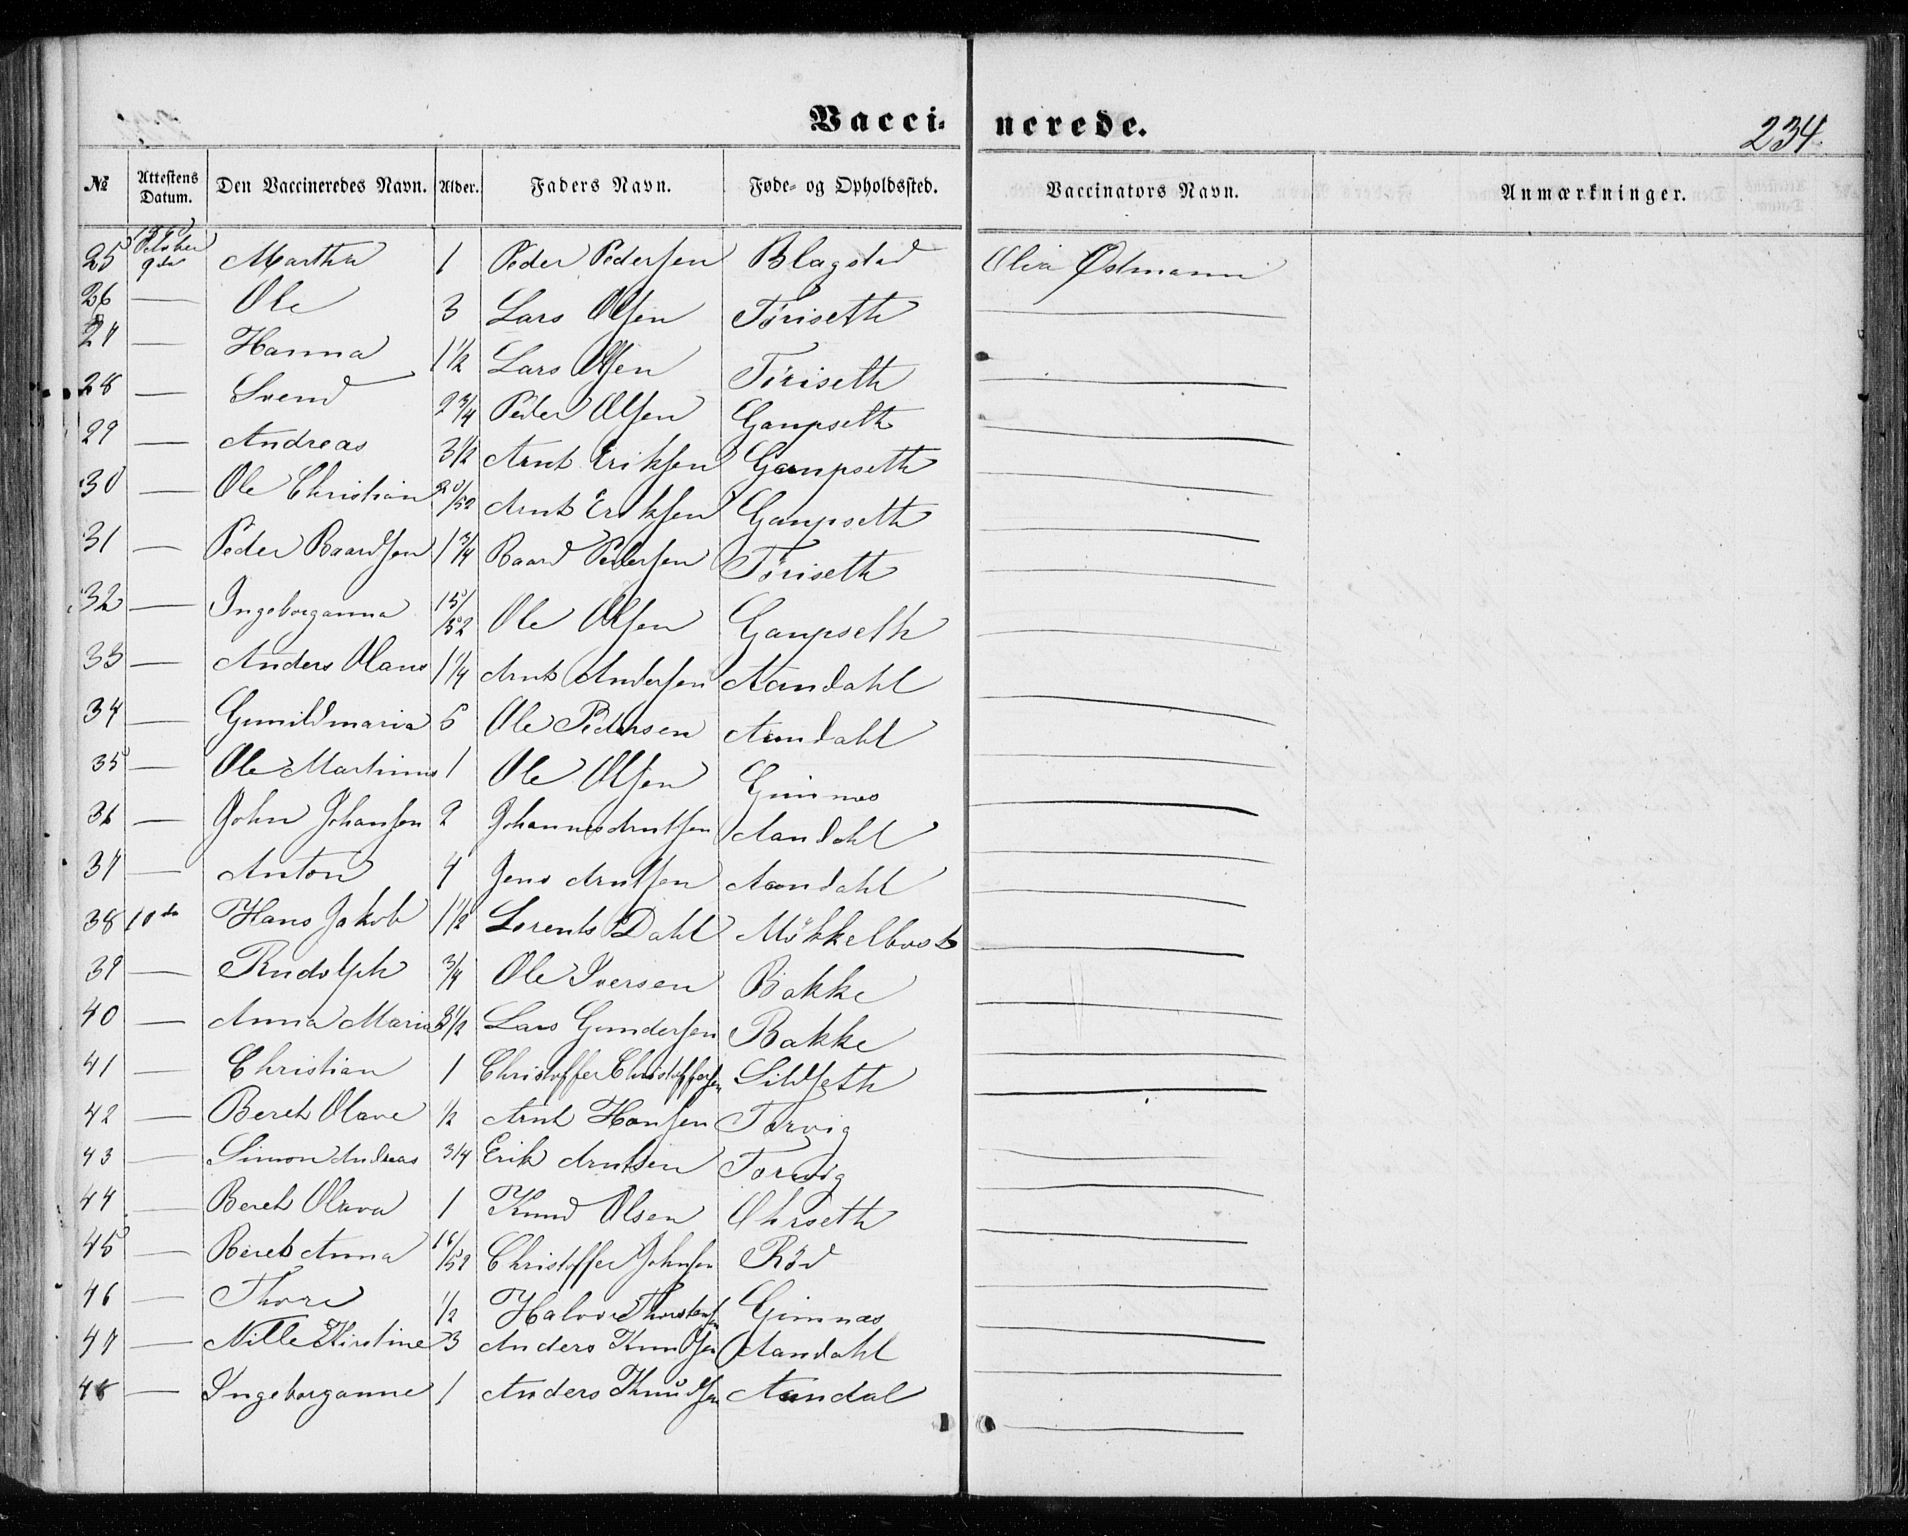 Vaccinerede.
234.
№ Attestens Datum. Den Vaccineredes Navn. Alder. Faders Navn. Føde- og Opholdssted. Vaccinators Navn. Anmærkninger.
25 October 9de Martha 1 Peder Pedersen Blagstad Oliva Østmann
26 — Ole 3 Lars Olsen Tøriseth —
27 — Hanna 1 1/2 Lars Olsen Tøriseth —
28 — Svend 2 3/4 Peder Olsen Gaupseth —
29 — Andreas 3 1/2 Arnt Eriksen Gaupseth —
30 — Ole Christian 20/52 Arnt Eriksen Gaupseth —
31 — Peder Baardsen 1 3/4 Baard Pedersen Tøriseth —
32 — Ingeborganna 15/52 Ole Olsen Gaupseth —
33 — Anders Olaus 1 1/4 Arnt Andersen Aandahl —
34 — Gunildmaria 5 Ole Pedersen Aandahl —
35 — Ole Martinus 1 Ole Olsen Gimnæs —
36 — John Johansen 2 Johannes Arntsen Aandahl —
37 — Anton 4 Jens Arntsen Aandahl —
38 10de Hans Jakob 1 1/2 Lorents Dahl Møkkelbost —
39 — Rudolph 3/4 Ole Iversen Bakke —
40 — Anna Maria 3 1/2 Lars Gundersen Bakke —
41 — Christian 1 Christoffer Christoffersen Sildseth —
42 — Bereth Olave 1/2 Arnt Hansen Torvig —
43 — Simon Andreas 3/4 Erik Arntsen Torvig —
44 — Bereth Olava 1 Knud Olsen Ohrseth —
45 — Beret Anna 16/52 Christoffer Johnsen Rød —
46 — Thore 1/2 Halvor Thorstensen Gimnæs —
47 — Nille Kirstine 3 Anders Knudsen Aandahl —
48 — Ingeborganne 1 Anders Knudsen Aandal —